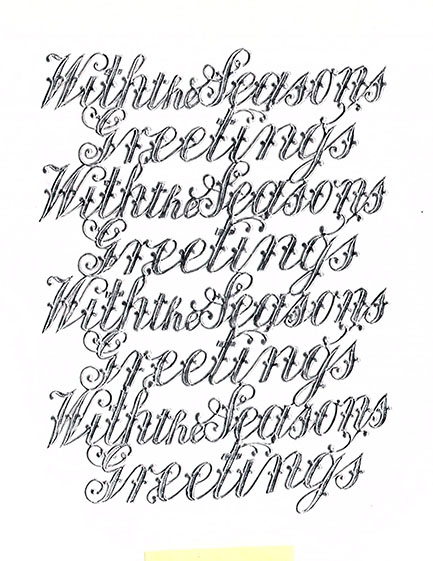 With the Seasons
Greetings
With the Seasons
Greetings
With the Seasons
Greetings
With the Seasons
Greetings